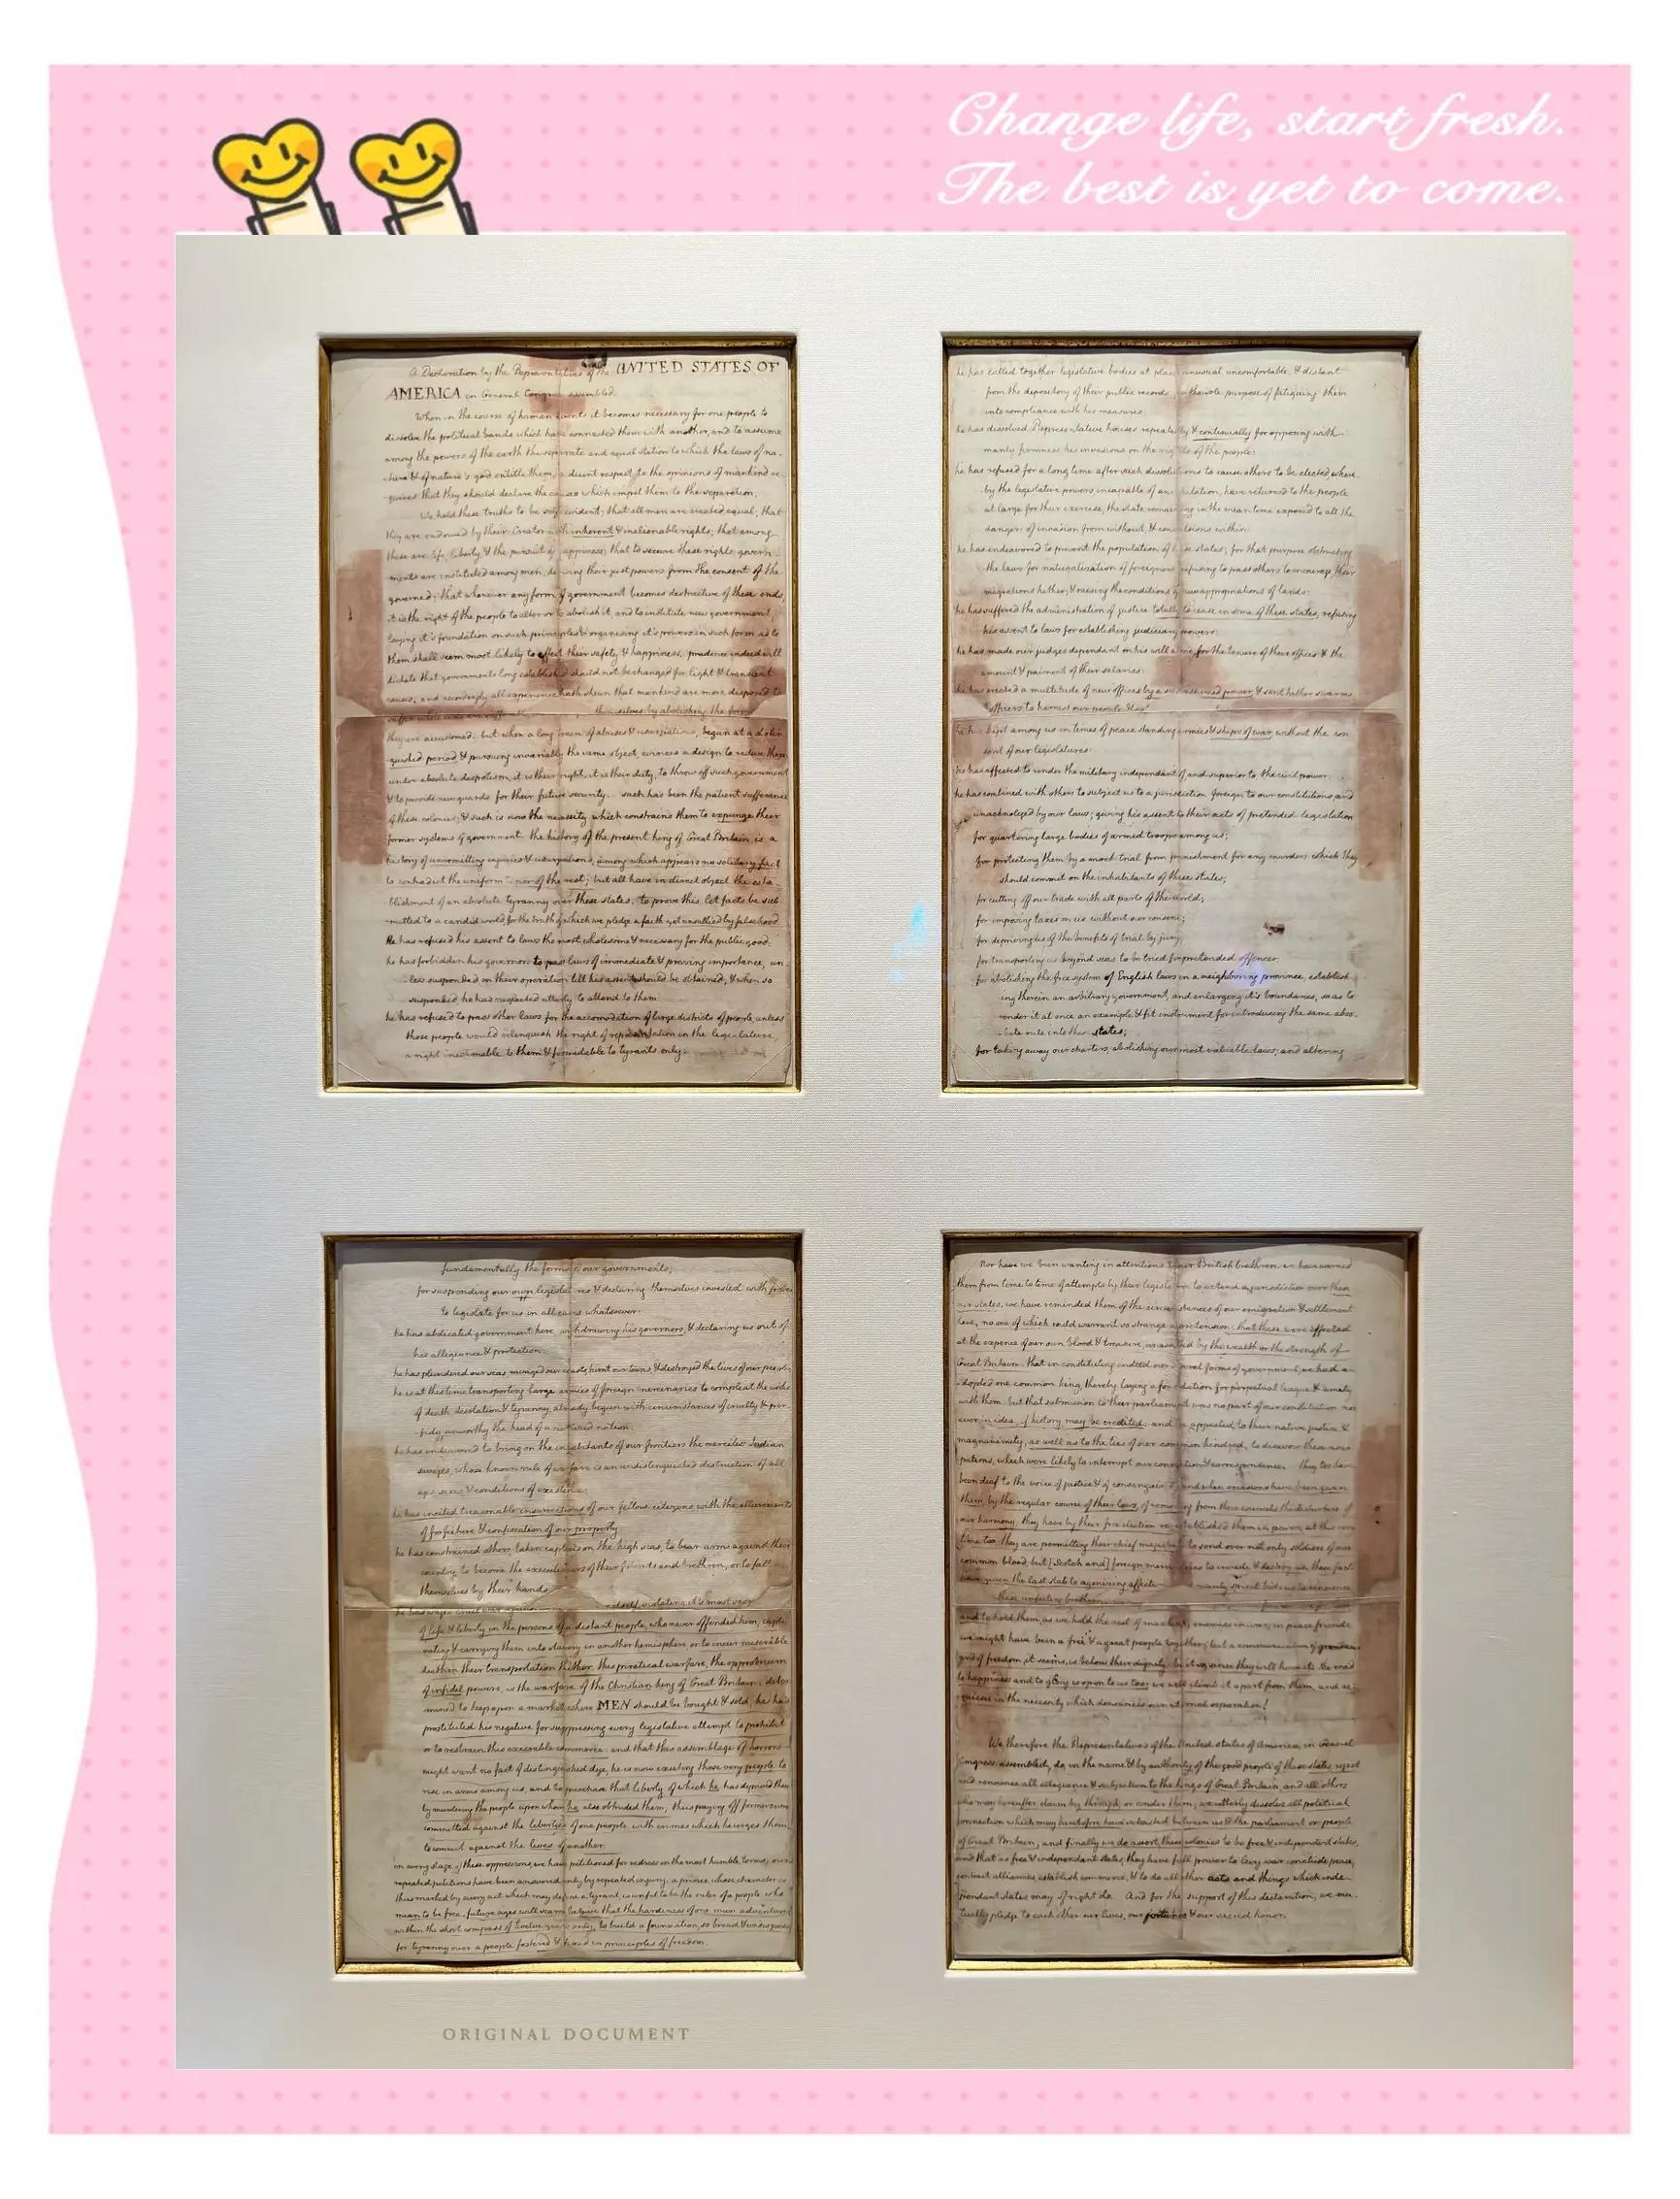 Change life, start fresh.
The best is yet to come.
A Declaration by the Representatives of the UNITED STATES OF
AMERICA in General Congress assembled.
When in the course of human events it becomes necessary for one people to
dissolve the political bands which have connected them with another, and to assume
among the powers of the earth the separate and equal station to which the laws of na-
-ture & of nature's god entitle them, a decent respect to the opinions of mankind re-
-quires that they should declare the causes which impel them to the separation.
We hold these truths to be self evident; that all men are created equal; that
they are endowed by their Creator with inherent & inalienable rights; that among
these are life, liberty, & the pursuit of happiness; that to secure these rights, govern-
-ments are instituted among men, deriving their just powers from the consent of the
governed; that whenever any form of government becomes destructive of these ends,
it is the right of the people to alter or to abolish it, and to institute new government,
laying it's foundation on such principles & organising it's powers in such form as to
them shall seem most likely to effect their safety & happiness. prudence indeed will
dictate that governments long established should not be changed for light & transient
causes; and accordingly all experience hath shewn that mankind are more disposed to
suffer while themselves by abolishing the forms
they are accustomed. but when a long train of abuses & usurpations, begun at a distin-
-guished period & pursuing invariably the same object, evinces a design to reduce them
under absolute despotism, it is their right, it is their duty, to throw off such government
& to provide new guards for their future security. such has been the patient sufferance
of these colonies; & such is now the necessity which constrains them to expunge their
former systems of government. the history of the present king of Great Britain is a
history of unremitting injuries & usurpations, among which appears no solitary fact
to contradict the uniform tenor of the rest; but all have in direct object the esta-
-blishment of an absolute tyranny over these states. to prove this, let facts be sub-
-mitted to a candid world for the truth of which we pledge a faith yet unsullied by falsehood.
He has refused his assent to laws the most wholesome & necessary for the public good:
he has forbidden his governors to pass laws of immediate & pressing importance, un-
-less suspended in their operation till his assent should be obtained; & when so
suspended, he has neglected utterly to attend to them.
he has refused to pass other laws for the accomodation of large districts of people, unless
those people would relinquish the right of representation in the legislature,
a right inestimable to them & formidable to tyrants only:
he has called together legislative bodies at places unusual, uncomfortable, & distant
from the depository of their public records for the sole purpose of fatiguing them
into compliance with his measures:
he has dissolved Representative houses repeatedly & continually for opposing with
manly firmness his invasions on the rights of the people:
he has refused for a long time after such dissolutions to cause others to be elected where-
-by the legislative powers incapable of annihilation, have returned to the people
at large for their exercise, the state remaining in the mean time exposed to all the
dangers of invasion from without, & convulsions within:
he has endeavored to prevent the population of these states; for that purpose obstructing
the laws for naturalization of foreigners refusing to pass others to encourage their
migrations hither; & raising the conditions of new appropriations of lands:
he has suffered the administration of justice totally to cease in some of these states, refusing
his assent to laws for establishing judiciary powers:
he has made our judges dependant on his will alone for the tenure of their offices & the
amount & paiment of their salaries:
he has erected a multitude of new offices by a self-assumed power, & sent hither swarms
officers to harrass our people & eat
he has kept among us in times of peace standing armies & ships of war without the con
sent of our legislatures:
he has affected to render the military independant of and superior to the civil power:
he has combined with others to subject us to a jurisdiction foreign to our constitutions and
unacknoleged by our laws; giving his assent to their acts of pretended legislation
for quartering large bodies of armed troops among us;
for protecting them by a mock trial from punishment for any murders which they
should commit on the inhabitants of these states;
for cutting off our trade with all parts of the world;
for imposing taxes on us without our consent;
for depriving us of the benefits of trial by jury;
for transporting us beyond seas to be tried for pretended offences;
for abolishing the free system of English laws in a neighboring province, establish
ing therein an arbitrary government, and enlarging it's boundaries, so as to
render it at once an example & fit instrument for introducing the same abso-
-lute rule into these states;
for taking away our charters, abolishing our most valuable laws, and altering
fundamentally the forms of our governments;
for suspending our own legislatures & declaring themselves invested with power
to legislate for us in all cases whatsoever:
he has abdicated government here, withdrawing his governors, & declaring us out of
his allegiance & protection:
he has plundered our seas, ravaged our coasts, burnt our towns, & destroyed the lives of our people:
he is at this time transporting large armies of foreign mercenaries to compleat the works
of death desolation & tyranny, already begun with circumstances of cruelty & per-
-fidy unworthy the head of a civilized nation:
he has endeavored to bring on the inhabitants of our frontiers the merciless Indian
savages, whose known rule of warfare is an undistinguished destruction of all
ages, sexes, & conditions of existence:
he has incited treasonable insurrections of our fellow-citizens with the allurements
of forfeiture & confiscation of our property
he has constrained others, taken captives on the high seas, to bear arms against their
country, to become the executioners of their friends and brethren, or to fall
themselves by their hands
he has waged cruel war against itself, violating it's most sacr
of life & liberty in the persons of a distant people, who never offended him, capti-
vating & carrying them into slavery in another hemisphere or to incur miserable
death in their transportation thither. this piratical warfare, the opprobrium
of infidel powers, is the warfare of the Christian king of Great Britain. deter-
mined to keep open a market where MEN should be bought & sold, he has
prostituted his negative for suppressing every legislative attempt to prohibit
or to restrain this execrable commerce: and that this assemblage of horrors
might want no fact of distinguished dye, he is now exciting those very people to
rise in arms among us, and to purchase that liberty of which he has deprived them
by murdering the people upon whom he also obtruded them; thus paying off former crimes
committed against the liberties of one people with crimes which he urges them
to commit against the lives of another.
in every stage of these oppressions, we have petitioned for redress in the most humble terms; our
repeated petitions have been answered only by repeated injury. a prince whose character is
thus marked by every act which may define a tyrant, is unfit to be the ruler of a people who
mean to be free. future ages will scarce believe that the hardiness of one man adventured
within the short compass of twelve years only, to build a foundation, so broad & undisguised
for tyranny over a people fostered & fixed in principles of freedom.
Nor have we been wanting in attentions to our British brethren. we have warned
them from time to time of attempts by their legislature to extend a jurisdiction over these
our states. we have reminded them of the circumstances of our emigration & settlement
here, no one of which could warrant so strange a pretension: that these were effected
at the expence of our own blood & treasure, unassisted by the wealth or the strength of
Great Britain: that in constituting indeed our several forms of government, we had a-
-dopted one common king, thereby laying a foundation for perpetual league & amity
with them: but that submission to their parliament was no part of our constitution nor
ever in idea, if history may be credited: and we appealed to their native justice &
magnanimity, as well as to the ties of our common kindred, to disavow these usur-
pations, which were likely to interrupt our connection & correspondence. they too have
been deaf to the voice of justice & of consanguinity; and when occasions have been given
them, by the regular course of their laws, of removing from their councils the disturbers of
our harmony, they have by their free election re-established them in power. at this very
time too they are permitting their chief magistrate to send over not only soldiers of our
common blood, but [Scotch and] foreign mercenaries to invade & destroy us. these facts
have given the last stab to agonizing affection manly spirit bids us to renounce
these unfeeling brethren.
and to hold them, as we hold the rest of mankind, enemies in war, in peace friends.
we might have been a free & a great people together; but a communication of grandeur
and of freedom, it seems, is below their dignity. be it so, since they will have it: the road
to happiness and to glory is open to us too; we will climb it apart from them, and ac-
quiesce in the necessity which denounces our eternal separation!
We therefore the Representatives of the United states of America, in General
Congress assembled, do, in the name & by authority of the good people of these states, reject
and renounce all allegiance & subjection to the kings of Great Britain, and all others
who may hereafter claim by, through, or under them; we utterly dissolve all political
connection which may heretofore have subsisted between us & the parliament or people
of Great Britain; and finally we do assert these colonies to be free & independant states,
and that as free & independant states, they have full power to levy war, conclude peace,
contract alliances, establish commerce, & to do all other acts and things which inde-
pendant states may of right do. And for the support of this declaration, we mu-
tually pledge to each other our lives, our fortunes & our sacred honor.
ORIGINAL DOCUMENT